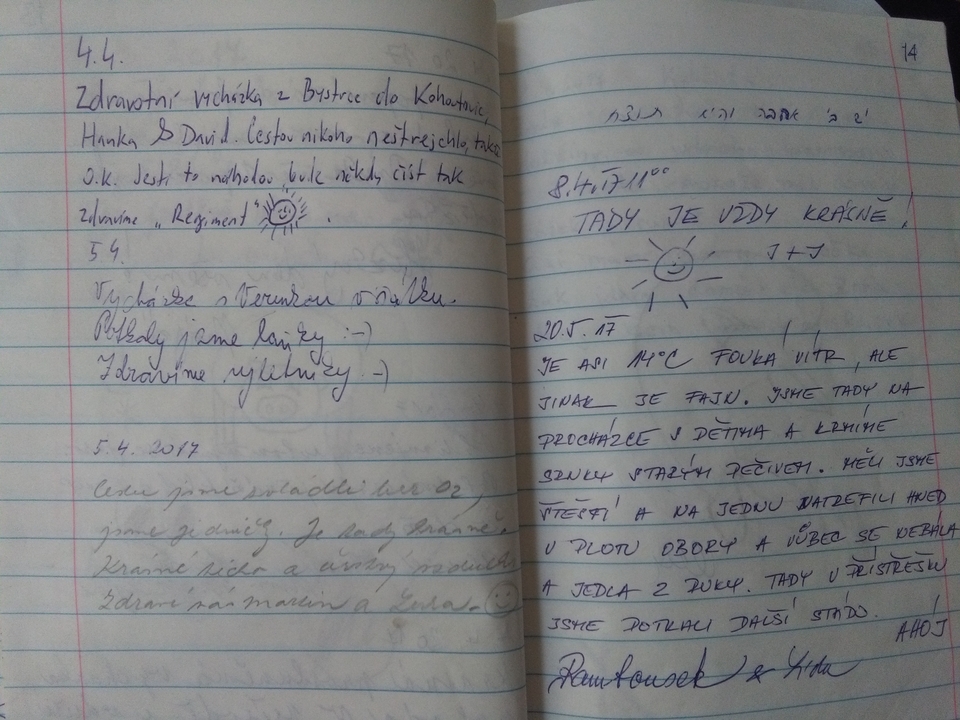 4.4.
Zdravotní vycházka z Bystrce do Kohoutovic,
Hanka & David. Cestou nikoho neštrejchlo, takže
o.k. Jestli to náhodou bude někdy číst tak
zdravíme „Regiment" .
5.4.
Vycházka s Verunkou v šátku.
Potkaly jsme laňky :-)
Zdravíme výletníky :-)
5.4. 2017
Cestu jsme zvládli bez O2,
jsme jedničky. Je tady krásně.
Krásné
Zdraví vás Martin a
14
8.4.17 11⁰⁰
TADY JE VŽDY KRÁSNĚ!
J+J
20.5.17
JE ASI 14°C FOUKÁ VÍTR, ALE
JINAK JE FAJN. JSME TADY NA
PROCHÁZCE S DĚTMA A KRMÍME
SRNKY STARÝM PEČIVEM. MĚLI JSME
ŠTĚSTÍ A NA JEDNU NATREFILI HNED
U PLOTU OBORY A VŮBEC SE NEBÁLA
A JEDLA Z RUKY. TADY U PŘÍSTŘEŠKU
JSME POTKALI DALŠÍ STÁDO.
AHOJ
Rambousek &